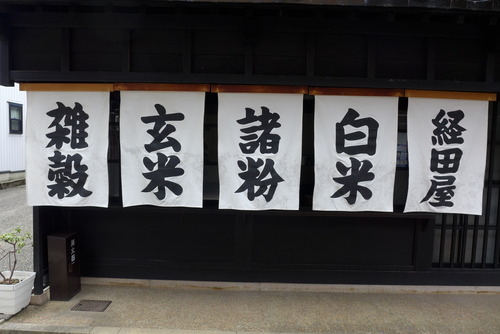 経田屋
白米
諸粉
玄米
雑穀